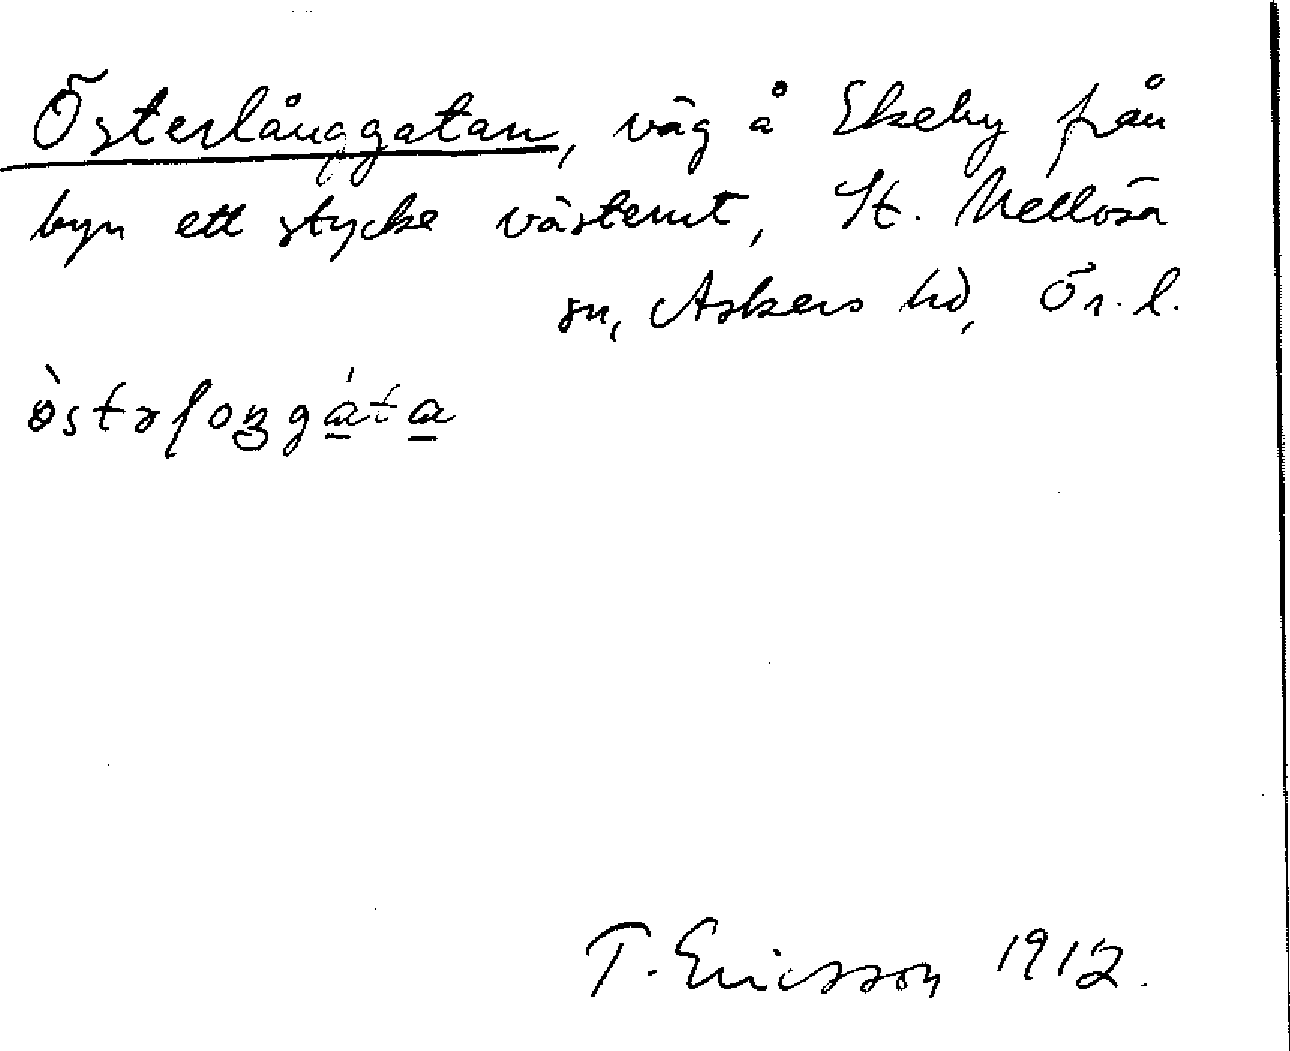 Österlånggatan, väg å Ekeby från
byn ett stycke västerut, St. Mellösa
sn, Askers hd, Ör. l.
T. Ericsson 1912.